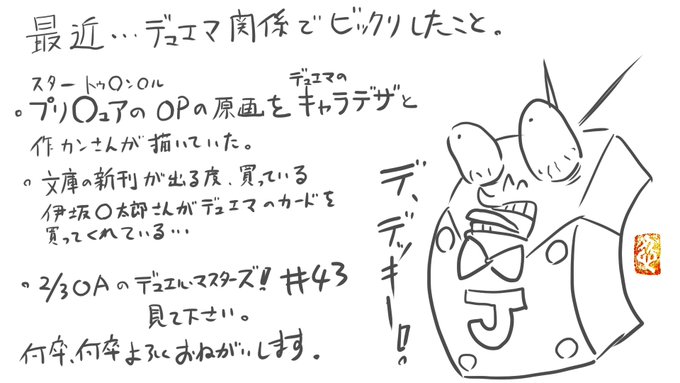 最近…デュエマ関係でビックリしたこと。
スタートゥ○ン○ル
。プリ○ュアのOPの原画をキャラデザと
デュエマの
作カンさんが描いていた。
。文庫の新刊が出る度、買っている
伊坂○太郎さんがデュエマのカードを
買ってくれている…
。2/3OAのデュエル・マスターズ!! #43
見て下さい。
何卒、何卒よろしくおねがいします。
デ、デッキー!!
J